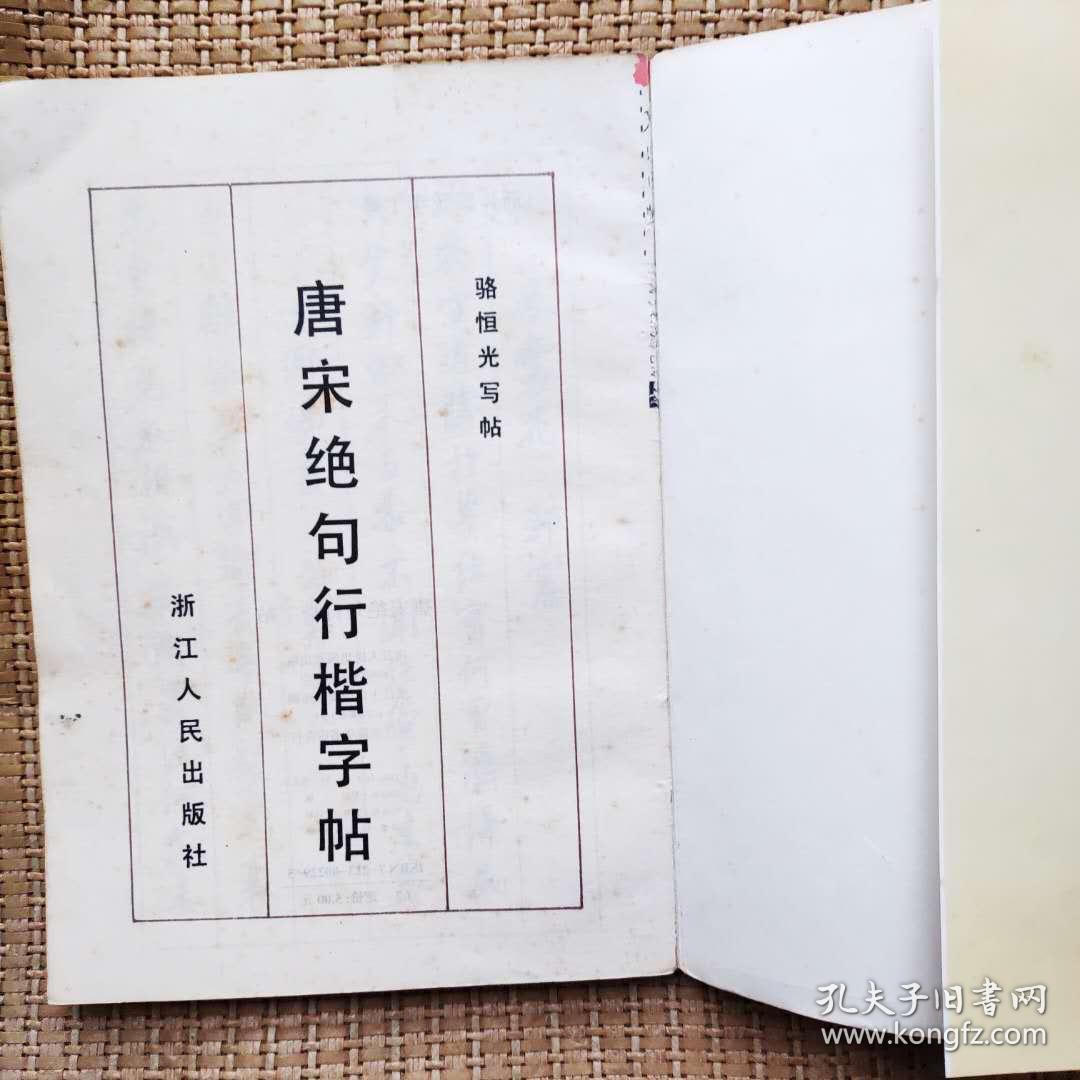 骆恒光写帖
唐宋绝句行楷字帖
浙江人民出版社
孔夫子旧書网
www.kongfz.com